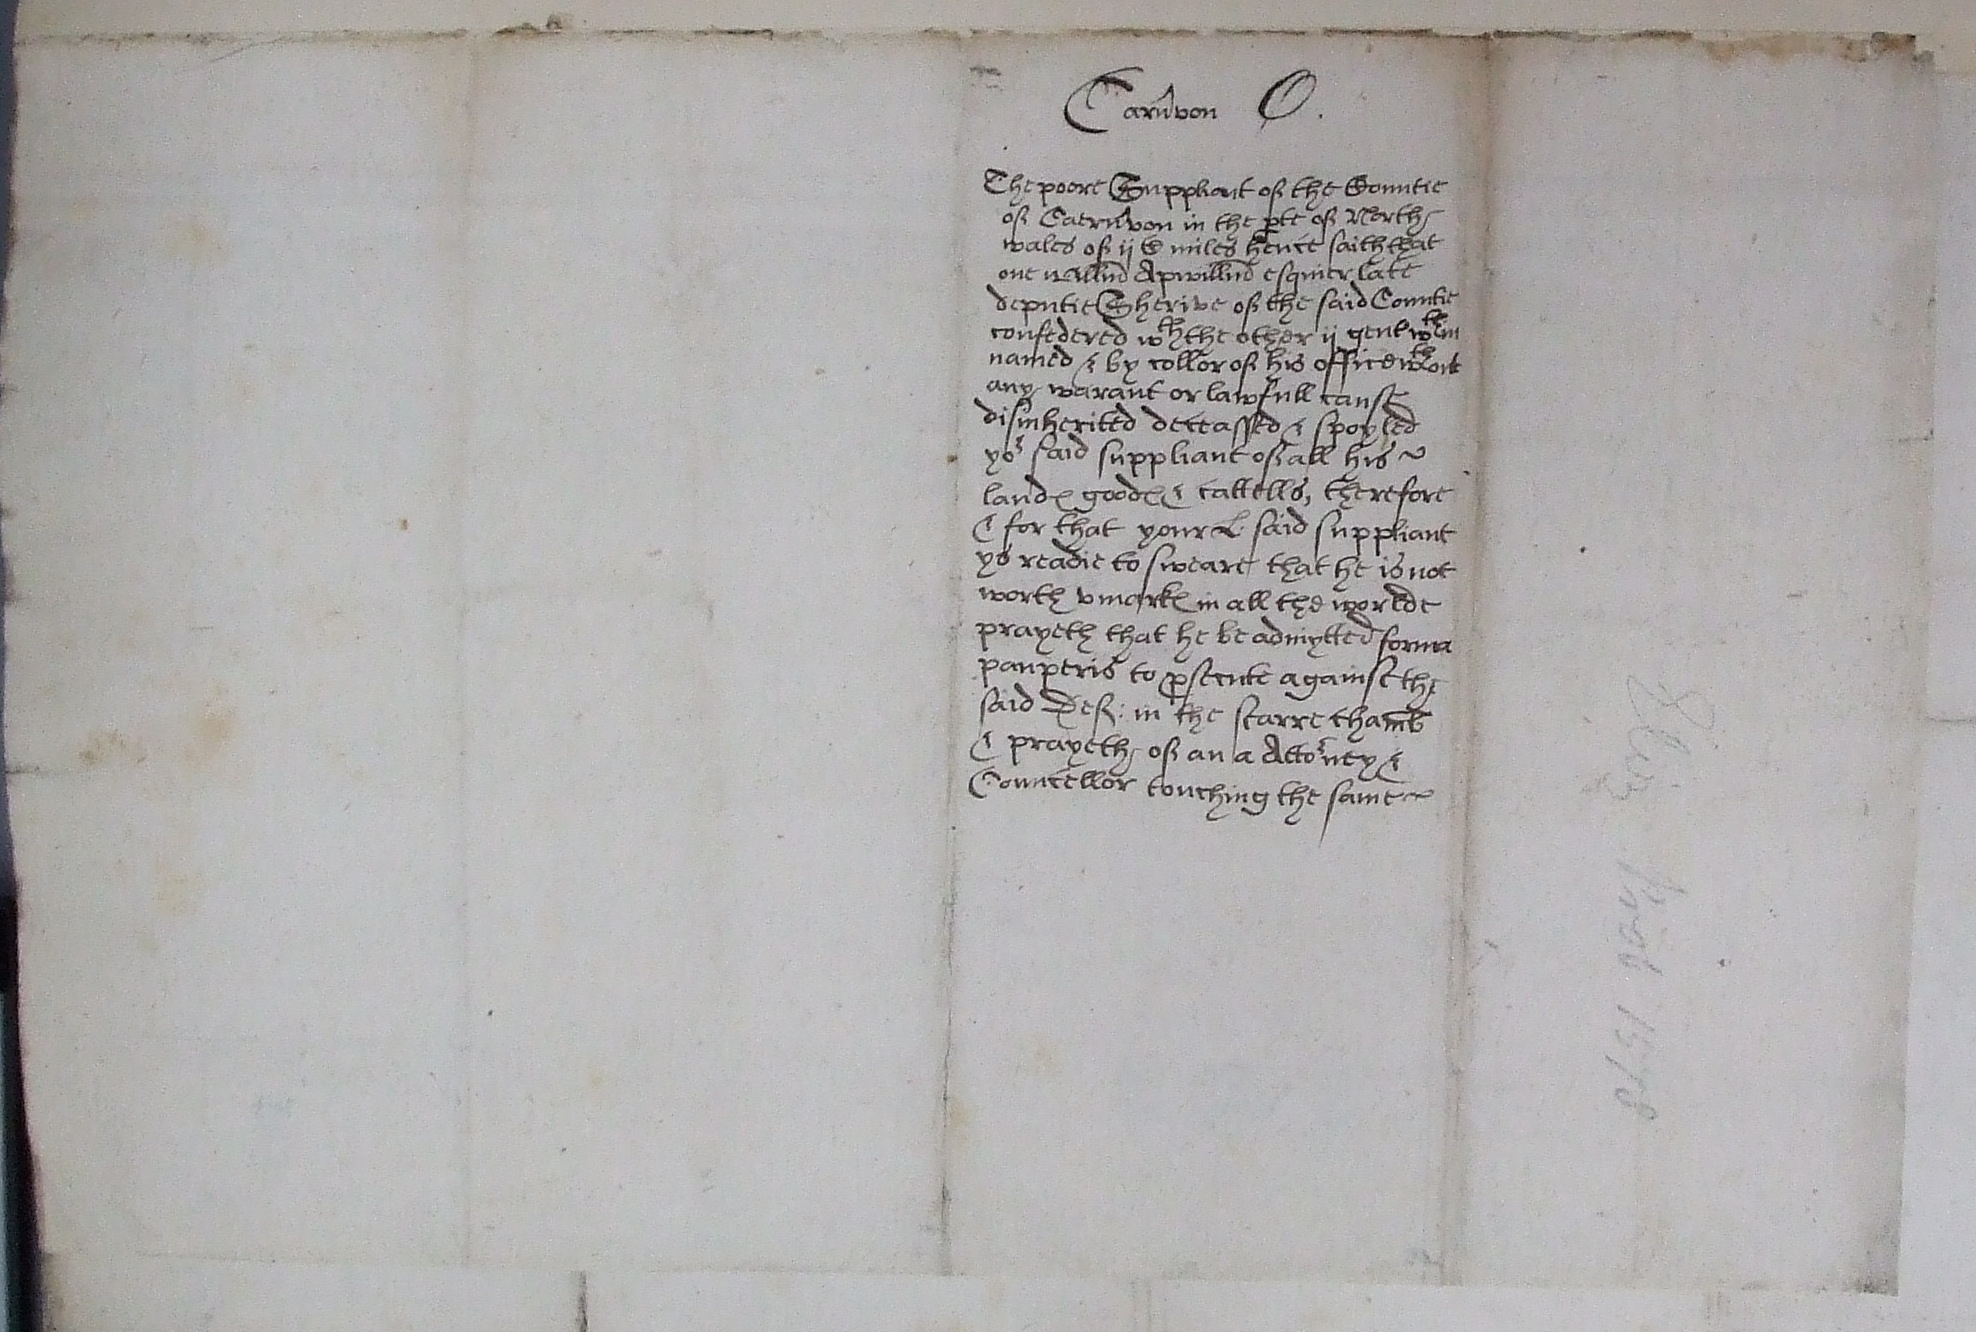 Carnvon O.
The poore Suppliant of the Countie
of Caernvon in the pte of North
wales of ij C miles hence saith that
one willm Apwillm esquier late
deputie Sherive of the said Countie
confedered wth the other ij gent wthin
named & by collor of his office wthout
any warant or lawfull cause
disinherited deceassed & spoyled
yor said suppliant of all his
landes goodes & cattells, therefore
& for that your L. said suppliant
ys readie to sweare that he is not
worth v markes in all the worlde
prayeth that he be admytted forma
pauperis to pscente against the
said Def: in the starre chamb
& prayeth of an a Attorney &
Councellor touching the same
Eliz
1578